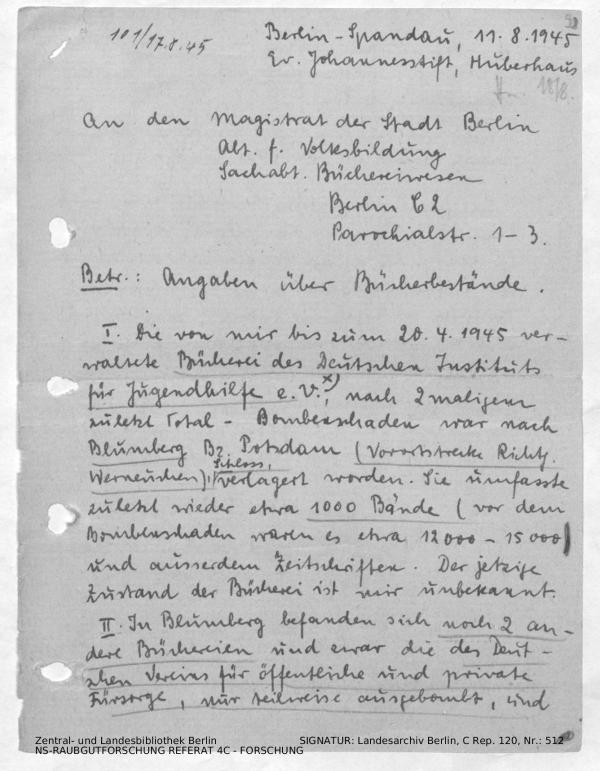 101/17.8.45
Berlin-Spandau, 11.8.1945
Ev. Johannesstift, Huberhaus
18/8.
An den Magistrat der Stadt Berlin
Abt. f. Volksbildung
Sachabt. Büchereiwesen
Berlin C2
Parochialstr. 1-3.
Betr.: Angaben über Bücherbestände.
I. Die von mir bis zum 20.4.1945 ver-
waltete Bücherei des Deutschen Instituts
für Jugendhilfe e.V.x), nach 2maligem
zuletzt Total-Bombenschaden war nach
Blumberg Bz. Potsdam (Vorortstrecke Richtg.
Werneuchen), Schloss, verlagert worden. Sie umfasste
zuletzt wieder etwa 1000 Bände (vor dem
Bombenschaden waren es etwa 12000-15000)
und ausserdem Zeitschriften. Der jetzige
Zustand der Bücherei ist mir unbekannt.
II. In Blumberg befanden sich noch 2 an-
dere Büchereien und zwar die des Deut-
schen Vereins für öffentliche und private
Fürsorge, nur teilweise ausgebombt, und
Zentral- und Landesbibliothek Berlin
NS-RAUBGUTFORSCHUNG REFERAT 4C - FORSCHUNG
SIGNATUR: Landesarchiv Berlin, C Rep. 120, Nr.: 512